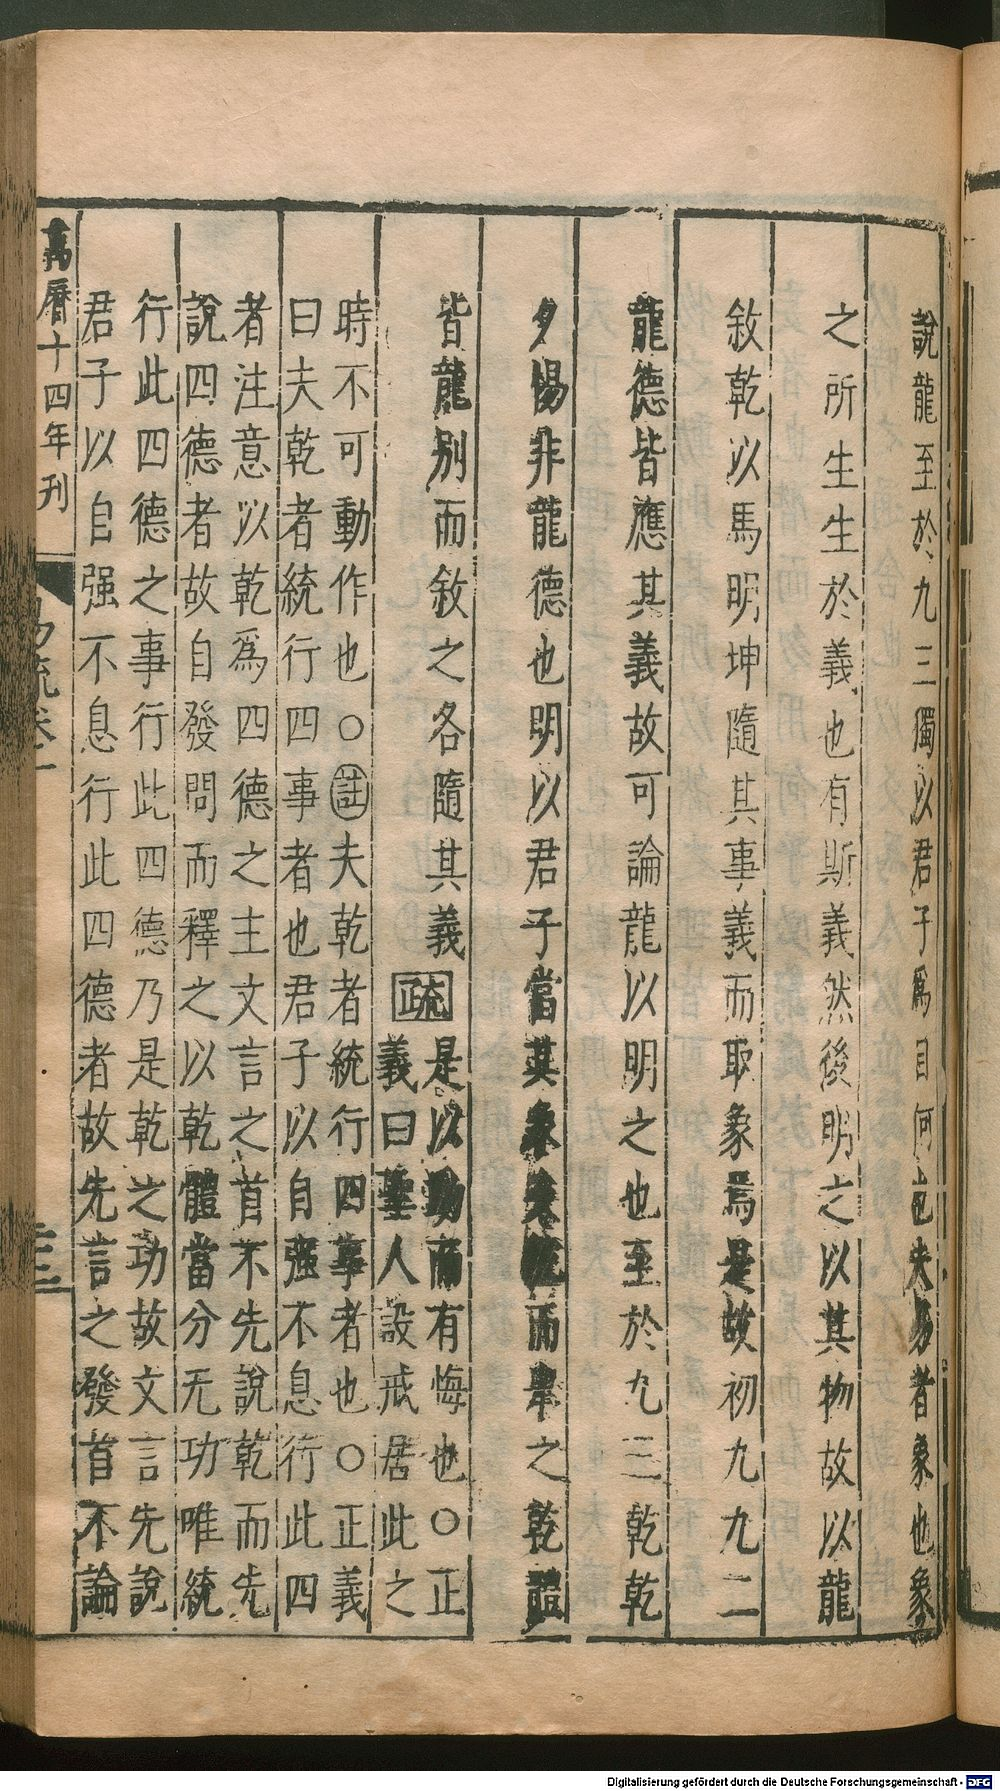 說龍至於九三獨以君子爲目何也夫易者象也象
之所生生於義也有斯義然後明之以其物故以龍
敘乾以馬明坤隨其事義而取象焉是故初九九二
龍德皆應其義故可論龍以明之也至於九三乾乾
夕惕非龍德也明以君子當其象矣統而舉之乾體
皆龍別而敘之各隨其義
疏
是以動而有悔也○正
義曰聖人設戒居此之
時不可動作也○註夫乾者統行四事者也○正義
曰夫乾者統行四事者也君子以自强不息行此四
者注意以乾爲四德之主文言之首不先說乾而先
說四德者故自發問而釋之以乾體當分无功唯統
行此四德之事行此四德乃是乾之功故文言先說
君子以自强不息行此四德者故先言之發首不論
萬曆十四年刊
易疏卷一
三
Digitalisierung gefördert durch die Deutsche Forschungsgemeinschaft - DFG